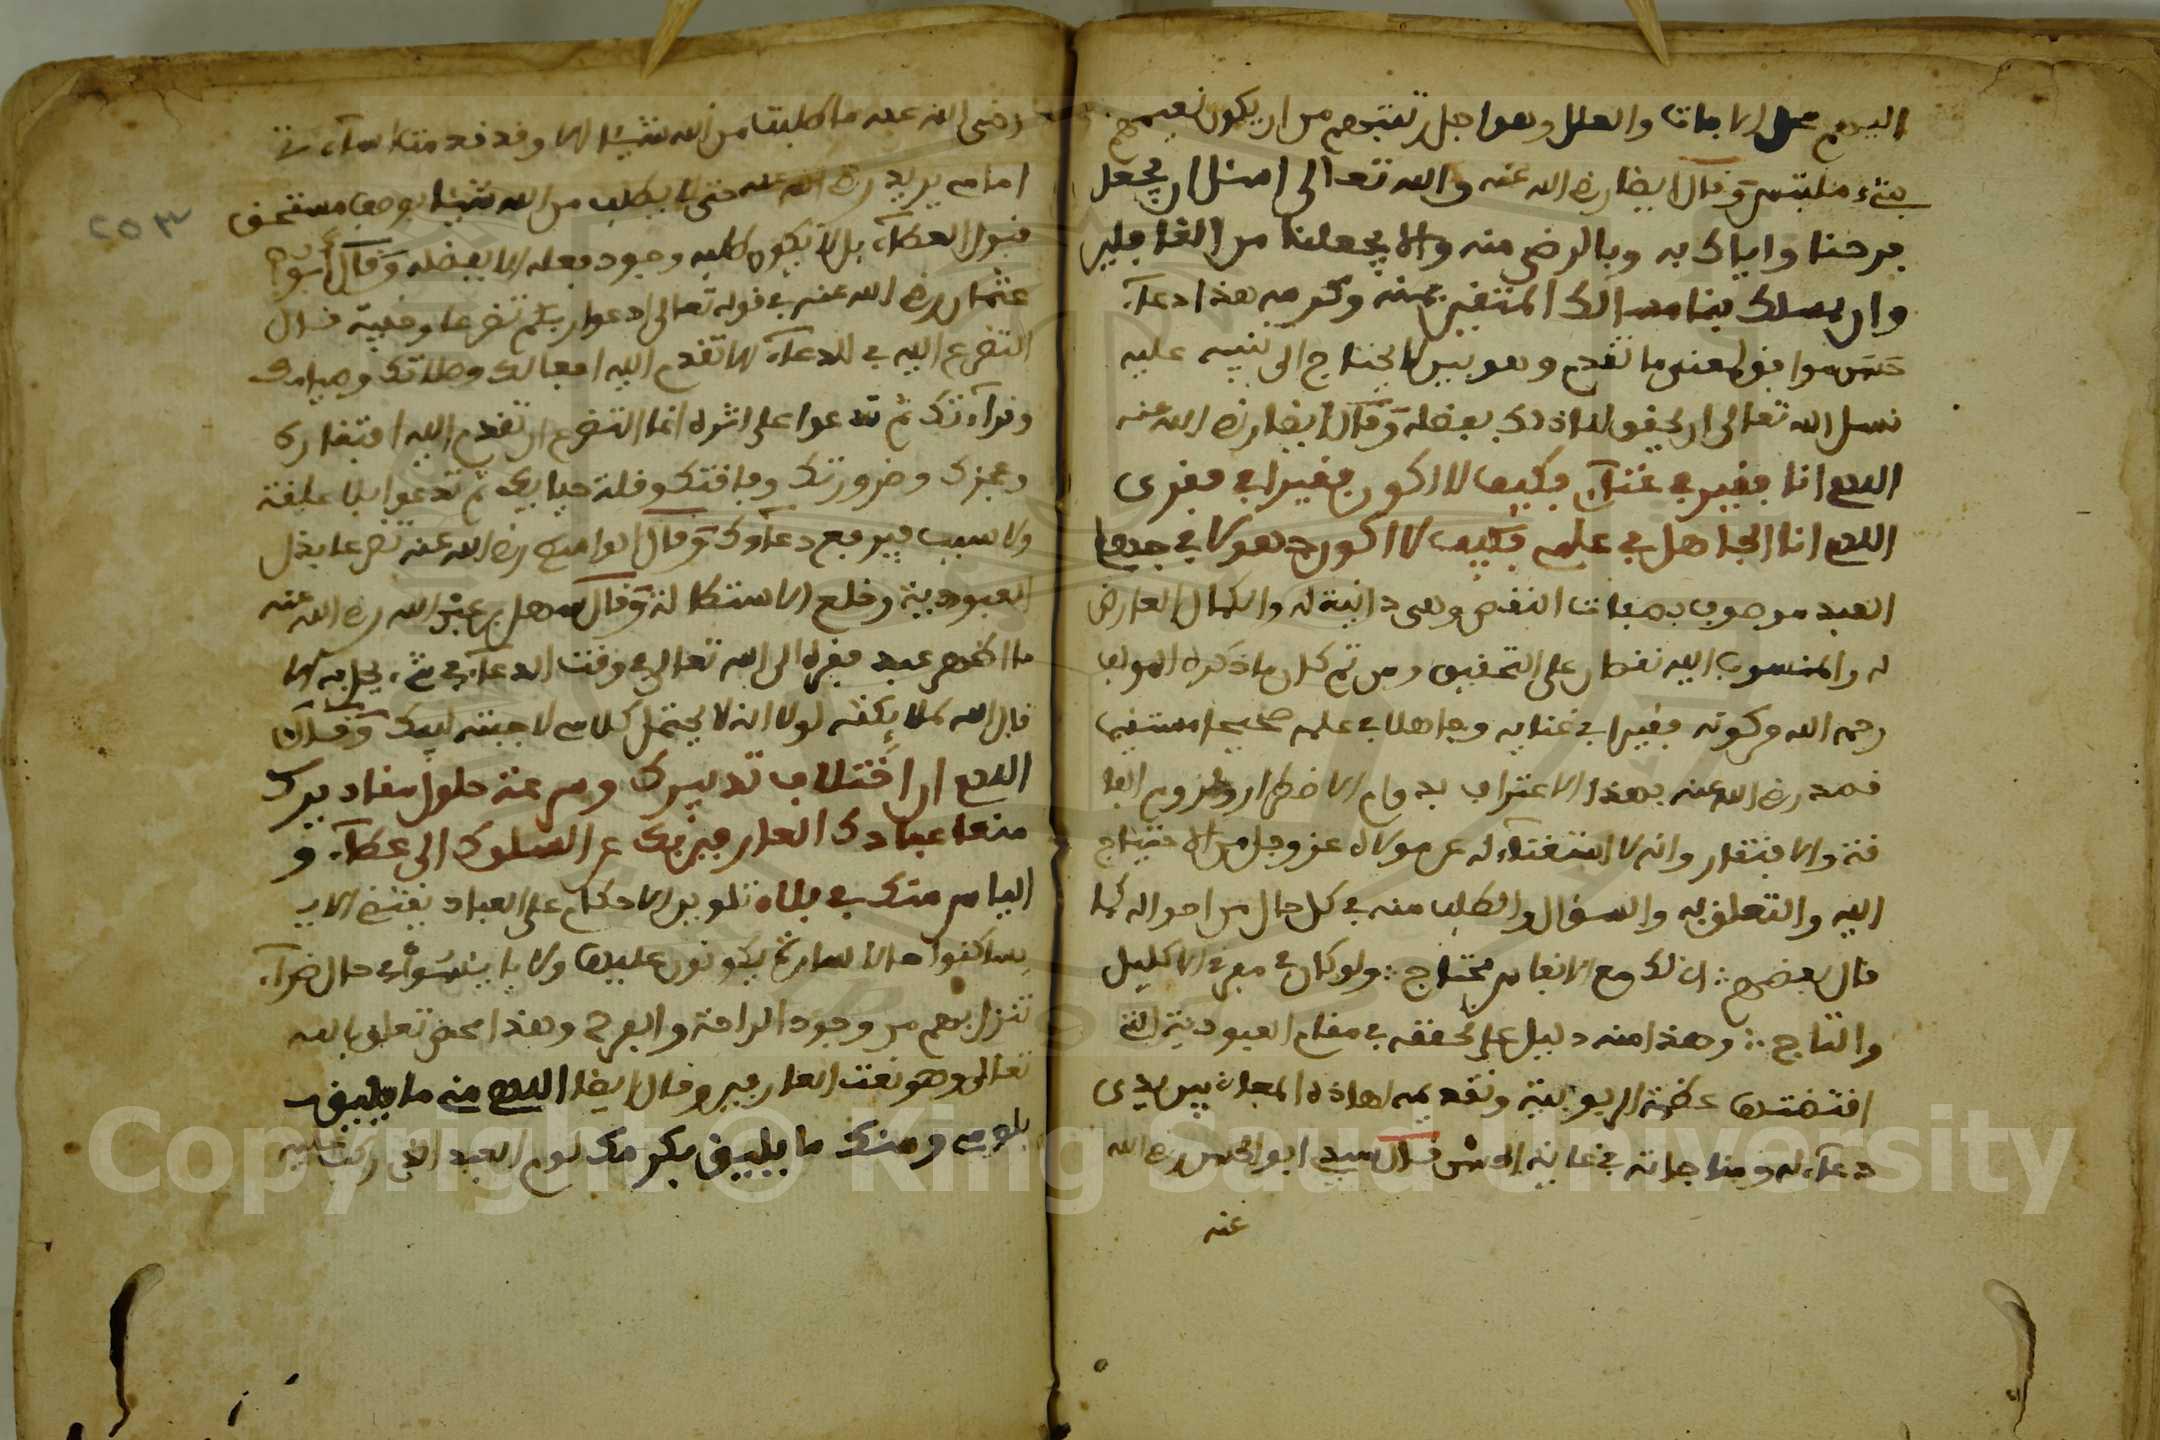 اليهم محل الافات والعلل وهو اجل رتبتهم من ان يكون نعيمهم
بشيء ملتبس وقال ايضا رضي الله عنه والله تعالى اسئل ان يجعل
فرحنا واياك به وبالرضى منه والا يجعلنا من الغافلين
وان يسلك بنا مسالك المتقين بمنه وكرمه هذا دعاء
حسن موافق لمعنى ما تقدم وهو بين لا يحتاج الى تنبيه عليه
نسل الله تعالى ان يحقق لنا ذلك بفضله وقال ايضا رضي الله عنه
اللهم انا الفقير في غناي فكيف لا اكون فقيرا في فقري
اللهم انا الجاهل في علمي فكيف لا اكون جهولا في جهلي
العبد موصوف بصفات النقص وهي ذاتية له والكمال العارض
له والمنسوب اليه نقصان على التحقيق ومن ثم كان ما ذكره المولف
رحمه الله من كونه فقيرا في غنايه وجاهلا في علمه صحيحا مستقيما
قصد رضي الله عنه بهذا الاعتراف بدوام الاضطرار ولزوم الفا
قة والافتقار وانه لا استغناء له عن مولاه عز وجل من الاحتياج
اليه والتعلق به والسؤال والطلب منه في كل حال من احواله كما
قال بعضهم انى لك مع الانفاس محتاج ولو كان في مفرقي الاكليل
والتاج وهذا منه دليل على تحققه في مقام العبودية التي
اقتضتها عظمة الربوبية وتقديمه لهاذه المعاني بين يدي
دعاءه ومناجاته في غاية الحسن قال سيدي ابو الحسن رضي الله
عنه
رضي الله عنه ما طلبت من الله شيئا الا وقد قدمت اساءتي
امامي يريد رضي الله عنه حتى لا يطلب من الله شيئا بوصف مستحق
قبول العطاء بل لا يكون طلبه وجود فعله الا بفضله وقال ابو
عثمان رضي الله عنه في قوله تعالى ادعوا ربكم تضرعا وخفية قال
التضرع اليه في الدعاء الا تقدم اليه افعالك وصلاتك وصيامك
وقراءتك ثم تدعوا على اثره انما التضرع ان تقدم اليه افتقارك
وعجزك وضرورتك وفاقتك وقلة حيلتك ثم تدعوا بلا علقة
ولا سبب فيرفع دعاءوك وقال الواسطي رضي الله عنه تضرعا بذل
العبودية وخلع الاستطالة وقال سهل بن عبد الله رضي الله عنه
ما اظهر عبد فقره الى الله تعالى في وقت الدعاء في شيء يحل به الا
قال الله لملايكته لولا انه لا يحتمل كلامي لاجبته لبيك وقال
اللهم ان اختلاف تدبيرك وسرعة حلول مقاديرك
منعا عبادك العارفين بك عن السلوك الى عطاء و
الياس منك في بلاء تلوين الاحكام على العباد يقتضي الا
يساكنوا حالا سارة يكونون عليها ولا يايسوا في حال ضراء
تنزل بهم من وجود الراحة والفرح وهذا محض تعلق بالله
تعالى وهو نعت العارفين وقال ايضا اللهم مني ما يليق
بلومي ومنك ما يليق بكرمك لوم العبد الذي ركب عليه
٢٥٣
Copyright © King Saud University